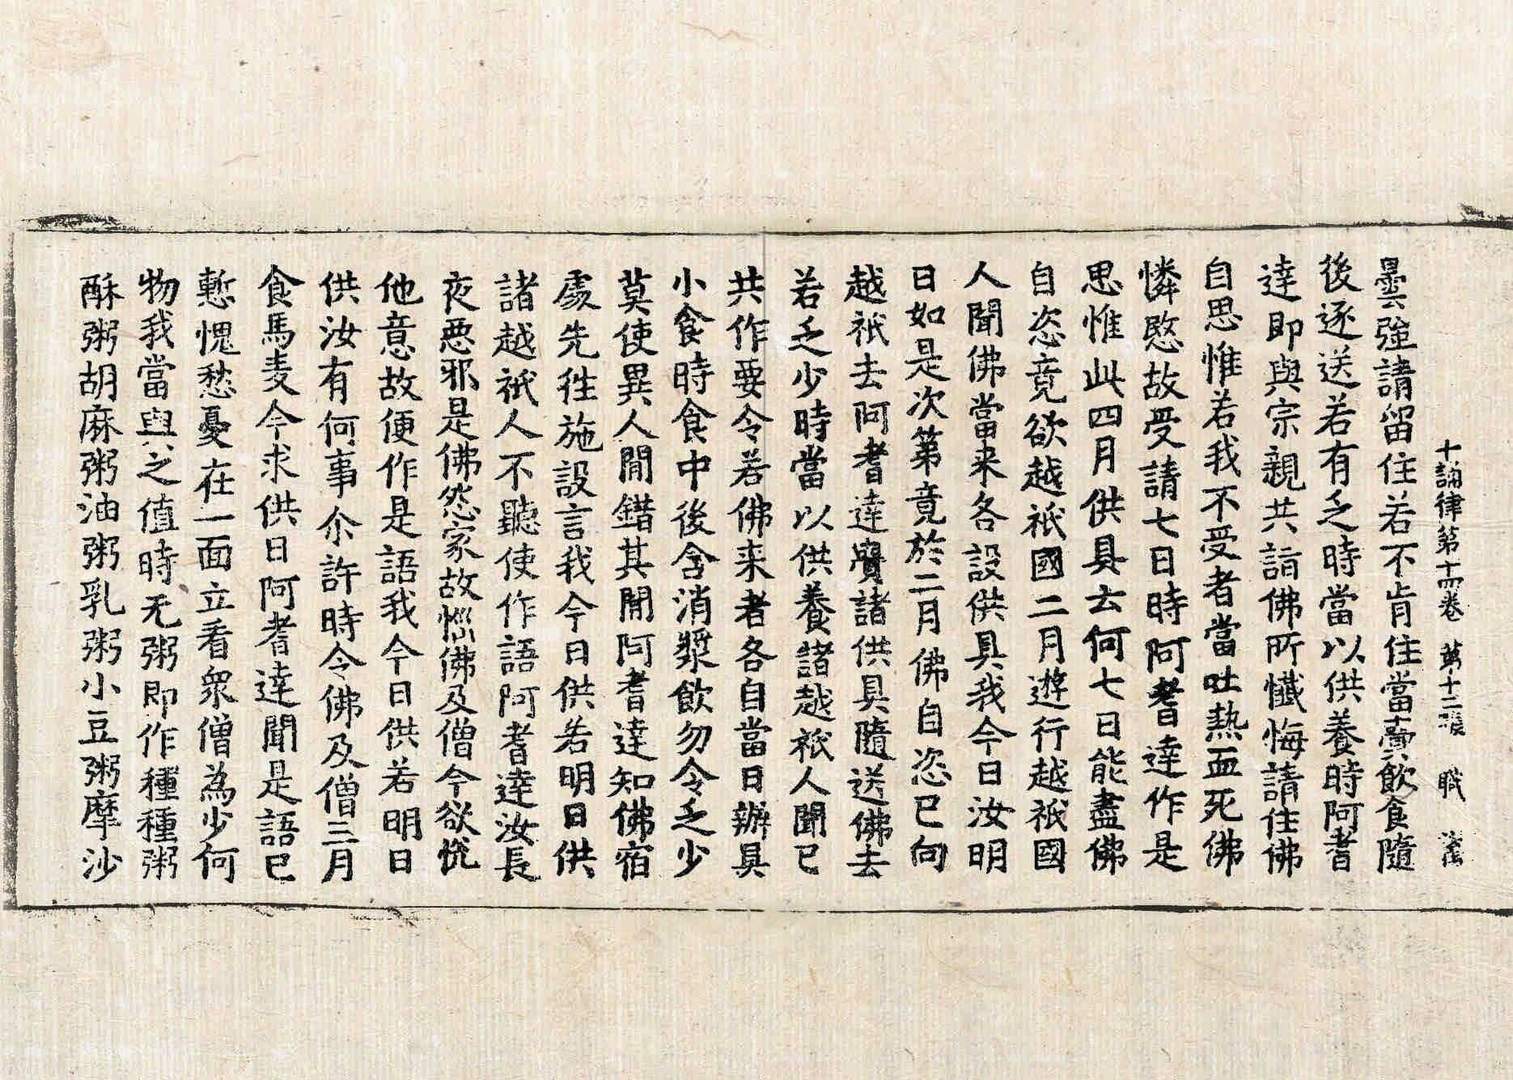 十誦律第十四卷 第十二張 職
曇強請留住若不肯住當賷飲食隨
後逐送若有乏時當以供養時阿耆
達即與宗親共詣佛所懺悔請住佛
自思惟若我不受者當吐熱血死佛
憐愍故受請七日時阿耆達作是
思惟此四月供具云何七日能盡佛
自恣竟欲越祇國二月遊行越祇國
人聞佛當来各設供具我今日汝明
日如是次第竟於二月佛自恣已向
越祇去阿耆達賷諸供具隨送佛去
若乏少時當以供養諸越祇人聞已
共作要令若佛来者各自當日辦具
小食時食中後含消漿飲勿令乏少
莫使異人間錯其間阿耆達知佛宿
處先徃施設言我今日供若明日供
諸越祇人不聽使作語阿耆達汝長
夜惡邪是佛怨家故惱佛及僧今欲悅
他意故便作是語我今日供若明日
供汝有何事尒許時令佛及僧三月
食馬麦今求供日阿耆達聞是語已
慙愧愁憂在一面立看衆僧為少何
物我當與之值時无粥即作種種粥
酥粥胡麻粥油粥乳粥小豆粥摩沙